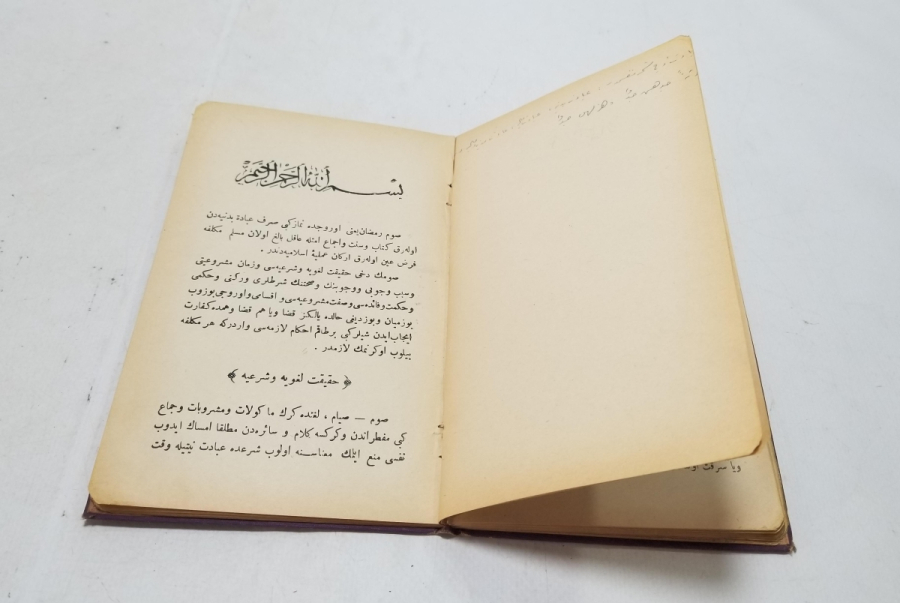 بسم الله الرحمن الرحيم
صوم رمضان يعنى اوروجده نمازكبى صرف عبادۀ بدنيه‌دن
اوله‌رق كتاب وسنت واجماع امتله عاقل بالغ اولان مسلم مكلفه
فرض عين اوله‌رق اركان عمليۀ اسلاميه‌دندر .
صومك دخى حقيقت لغويه وشرعيه‌سى وزمان مشروعيتى
وسبب وجوبى ووجوبنك وصحتنك شرطلرى وركنى وحكمى
وحكمت وفائده‌سى وصفت مشروعيه‌سى و اقسامى واوروجى بوزوب
بوزميان وبوزديغى حالده يالكز قضا ويا هم قضا وهمده كفارت
ايجاب ايدن شيلركبى برطاقم احكام لازمه‌سى واردركه هر مكلفه
بيلوب اوكرنمك لازمدر .
﴿ حقيقت لغويه وشرعيه ﴾
صوم — صيام ، لغتده كرك ماكولات ومشروبات وجماع
كبى مفطراتدن وكركسه كلام و سائره‌دن مطلقا امساك ايدوب
نفسى منع ايتمك معناسنه اولوب شرعده عبادت نيتيله وقت
ويا سرقت